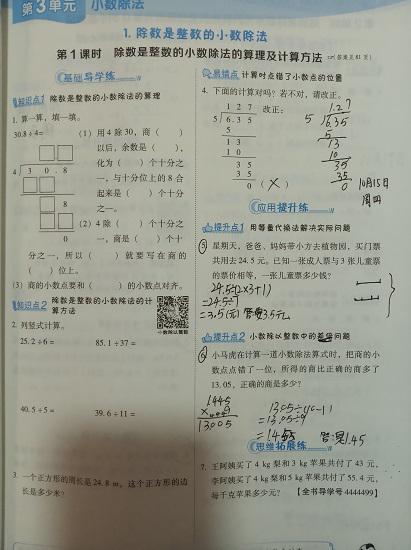 第3单元 小数除法
1. 除数是整数的小数除法
第1课时 除数是整数的小数除法的算理及计算方法 (答案见81页)
基础导学练
知识点1 除数是整数的小数除法的算理
1. 算一算，填一填。
30.8÷4=
4 30.8
8
0
(1) 用4除30，商( )
以后，余数是( )，
化为( )个十分之
一，与十分位上的8合
起来是( )个十分
之一。
(2) 4除( )个十分之
一，商是( )个十
分之一，所以( )就要写在商的
( )位上。
(3) 商的小数点要和( )的小数点对齐。
知识点2 除数是整数的小数除法的计
算方法
小数除以整数
2. 列竖式计算。
25.2÷6= 85.1÷37=
40.5÷5= 39.6÷11=
3. 一个正方形的周长是24.8 m，这个正方形的边
长是多少米？
易错点 计算时点错了小数点的位置
4. 下面的计算对吗？若不对，请改正。
127
5 6.35
5
13
10
35
35
0 ( × )
改正：
1.27
5 6.35
5
13
10
35
35
0
10月15日
周四
应用提升练
提升点1 用等量代换法解决实际问题
5 星期天，爸爸、妈妈带小方去植物园，买门票
共用去24.5元。已知一张成人票与3张儿童票
的票价相等，一张儿童票多少元？
24.5÷(2×3+1)
=24.5÷7
=3.5(元) 答：3.5元
提升点2 小数除以整数中的差倍问题
6 小马虎在计算一道小数除法算式时，把商的小
数点点错了一位，所得的商比正确的商多了
13.05，正确的商是多少？
1445
13005
=13.05÷9
答：是1.45
思维拓展练
7. 王阿姨买了4 kg梨和3 kg苹果共付了43元，
李阿姨买了4 kg梨和5 kg苹果共付了55.4元，
每千克苹果多少元？ 【全书导学号 4444499】